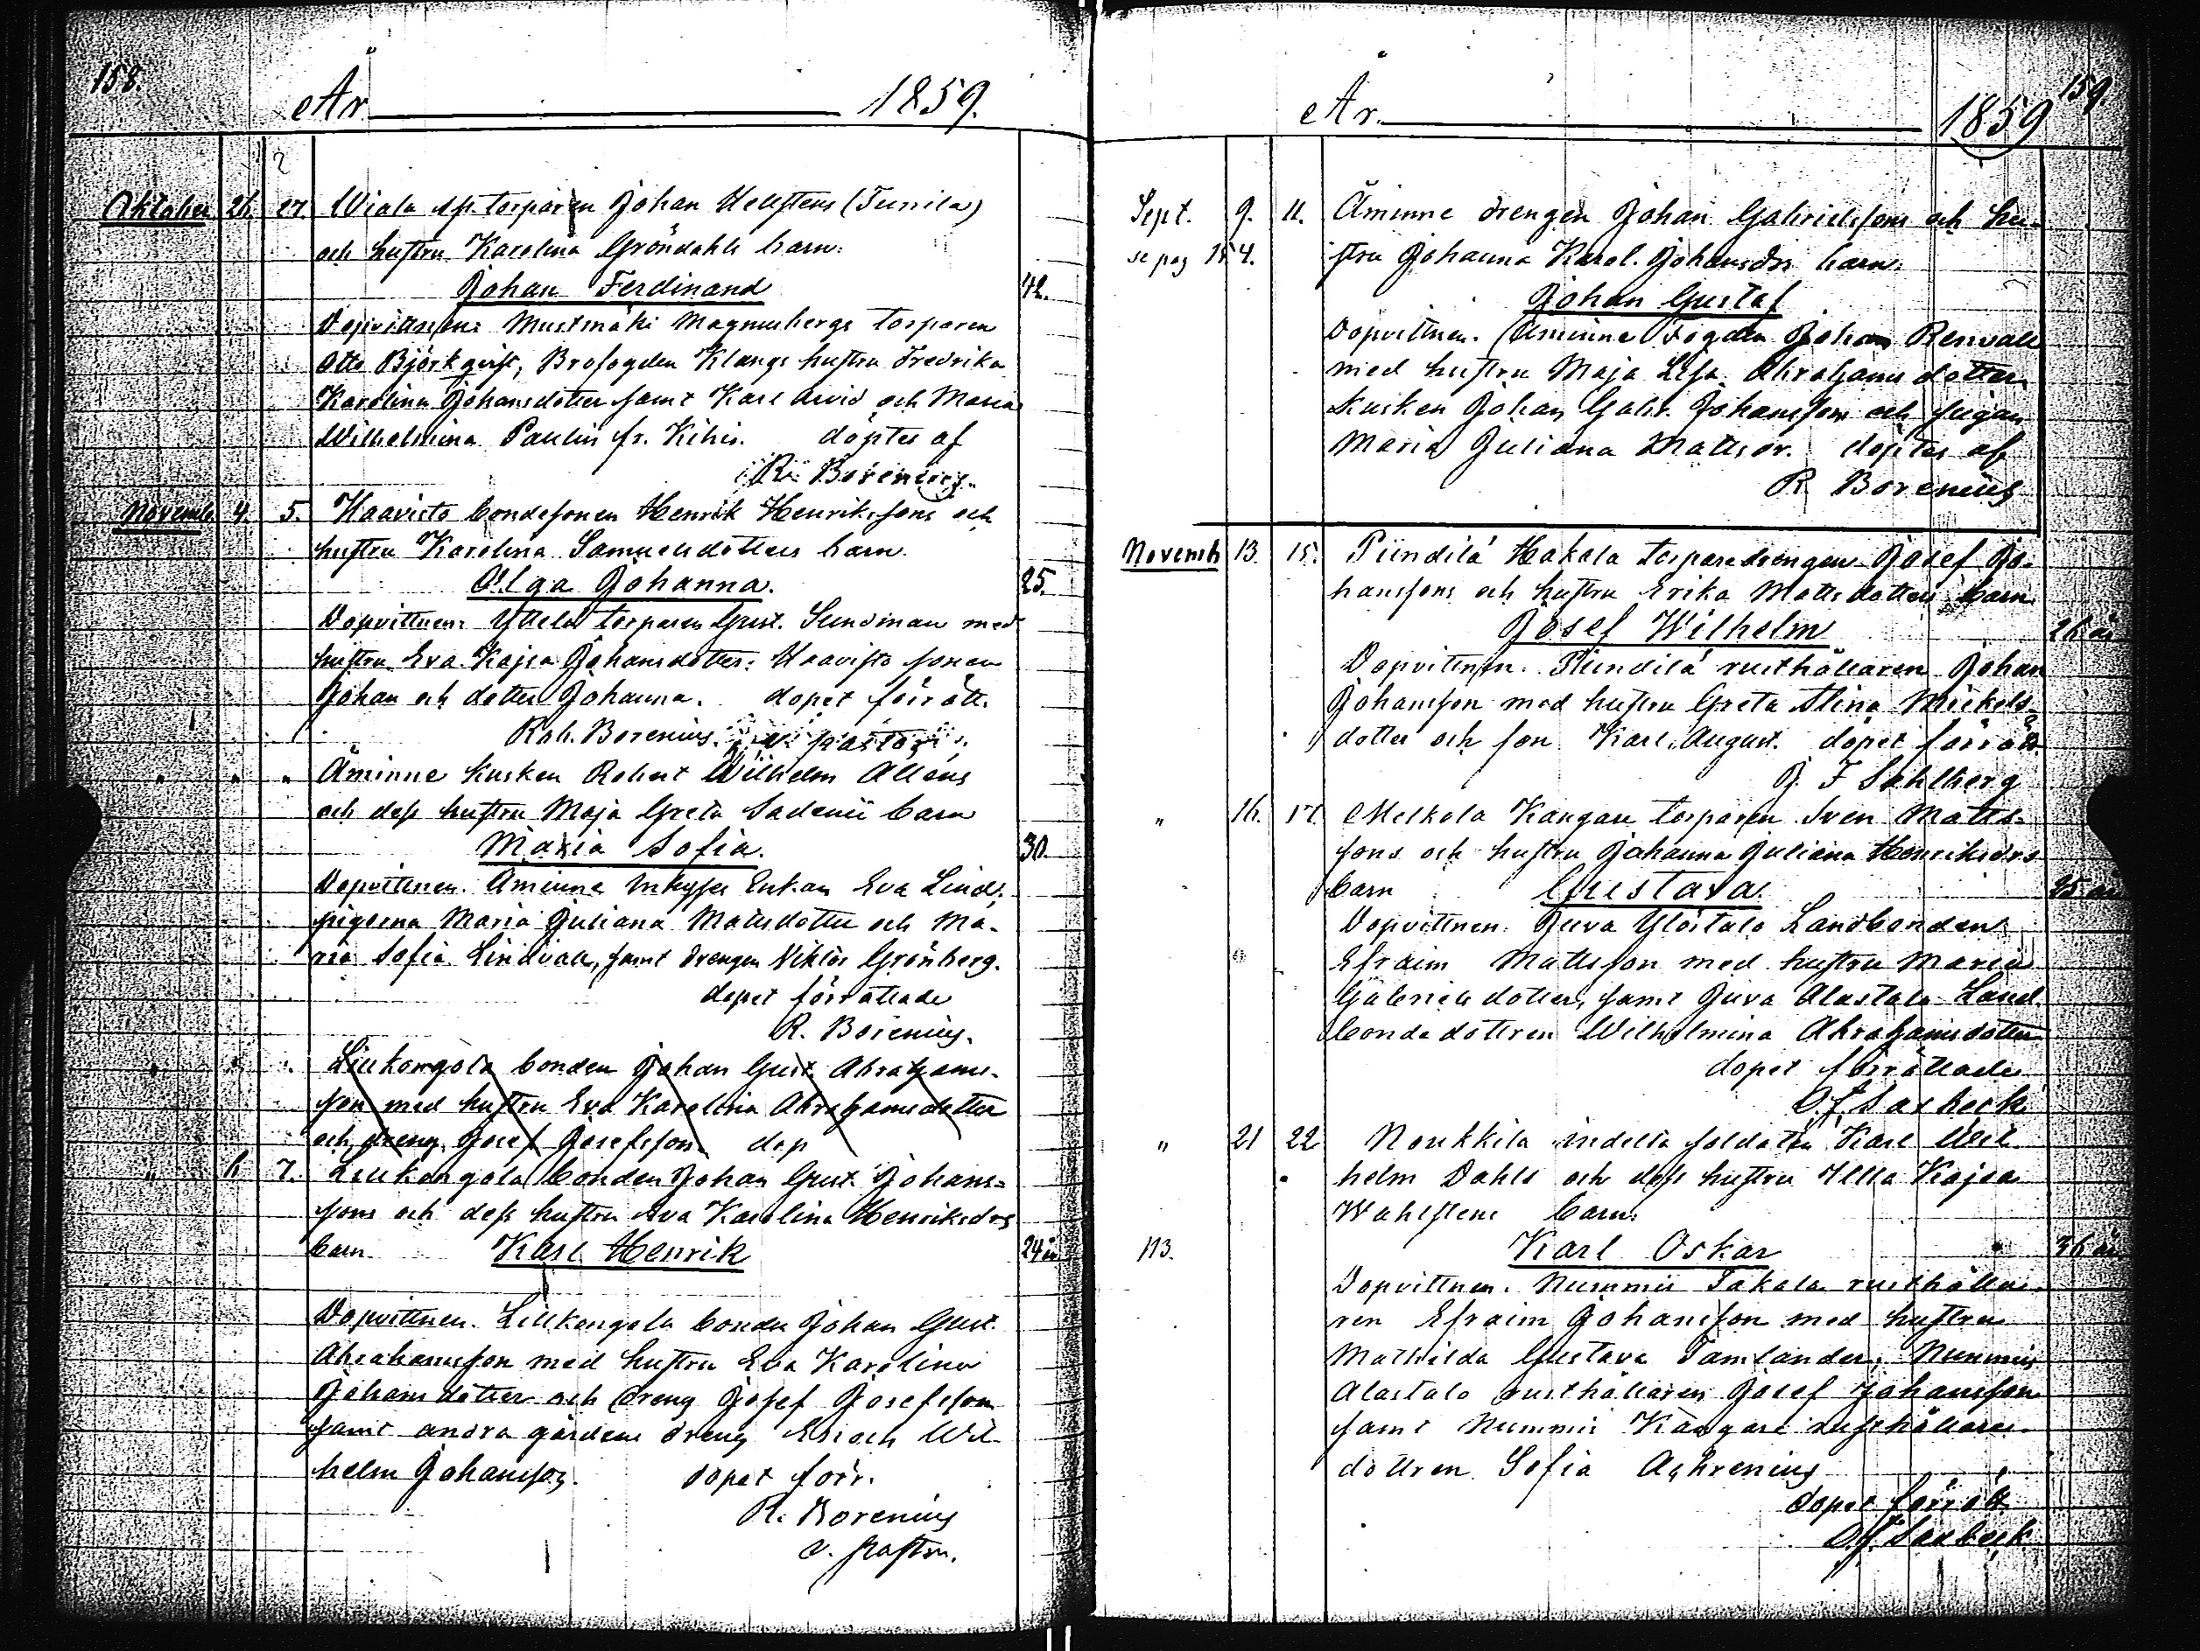 158.
År 1859.
Oktober 26. 27. Wiala sp. torparen Johan Hellstens (Tunila)
och hustru Karolina Gröndahls barn:
Johan Ferdinand 42.
Dopvittnen: Mustmäki Magnusbergs torparen
Otto Björkqvist, Brofogden Klangs hustru Fredrika
Karolina Johansdotter samt Karl Arvid och Maria
Wilhelmina Paulin fr. Kihis. döptes af
R. Borenius.
Novemb. 4. 5. Haavisto bondesonen Henrik Henrikssons och
hustru Karolina Samuelsdotters barn.
Olga Johanna. 25.
Dopvittnen: Yttelä torparen Gust. Sundman med
hustru Eva Kajsa Johansdotter: Haavisto sonen
Johan och dotter Johanna. dopet förrätt.
Rob. Borenius. v. pastor.
" " " Åminne kusken Robert Wilhelm Alléns
och dess hustru Maja Greta Sadenii barn
Maria Sofia. 30.
Dopvittnen. Åminne Inhyses Enkan Eva Lind,
pigorna Maria Juliana Mattsdotter och Ma-
ria Sofia Lindvall, samt drengen Niklas Grönberg.
dopet förrättade
R. Borenius.
" " " Liukongola bonden Johan Gust Abrahams-
son med hustru Eva Karolina Abrahamsdotter
och dreng Josef Josefsson dop
" 6. 7. Liukongola bonden Johan Gust. Johans-
sons och dess hustru Eva Karolina Henriksdrs
barn Karl Henrik 24 år
Dopvittnen. Liukongola bonden Johan Gust.
Abrahamsson med hustru Eva Karolina
Johansdotter och dreng Josef Josefsson
samt andra gårdens dreng Erich Wil-
helm Johansson. dopet förr.
R. Borenius
v. pastor.
159.
År. 1859
Sept. 9. 11. Åminne drengen Johan Gabrielssons och hu-
se pag 154. stru Johanna Karol. Johansdrs barn.
Johan Gustaf
Dopvittnen. Åminne Fogden Johan Renvall
med hustru Maja Lisa Abrahamsdotter
Kusken Johan Gabr. Johansson och pigan
Maria Juliana Mattsdr. döptes af
R. Borenius
Novemb 13. 15. Piindilä Hakala torparedrengen Josef Jo-
hanssons och hustru Erika Mattsdotters barn
Josef Wilhelm 26 år
Dopvittnen. Piindilä rusthållaren Johan
Johansson med hustru Greta Stina Mickels-
dotter och son Karl August. dopet förrätt
J. F. Sahlberg
" 16. 17. Melkola Kangare torparen Sven Matts-
sons och hustru Johanna Juliana Henriksdrs
barn Gustava. 35 år
Dopvittnen: Juva Ylöstalo Landbonden
Efraim Mattsson med hustru Maria
Gabrielsdotter, samt Juva Alastalo Land-
bondedottren Wilhelmina Abrahamsdotter
dopet förrättade
O. f. Saxbeck
" 21 22 Noukkila indelta soldaten Karl Wil-
helm Dahls och dess hustru Ulla Kajsa
Wahlstens barn.
113. Karl Oskar 36 år
Dopvittnen. Nummis Takala rusthålla-
ren Efraim Johansson med hustru
Mathilda Gustava Tamlander; Nummis
Alastalo rusthållaren Josef Johansson
samt Nummis Kangare rusthållare-
dottren Sofia Aghrenius
dopet förrätt
O. f. Saxbeck